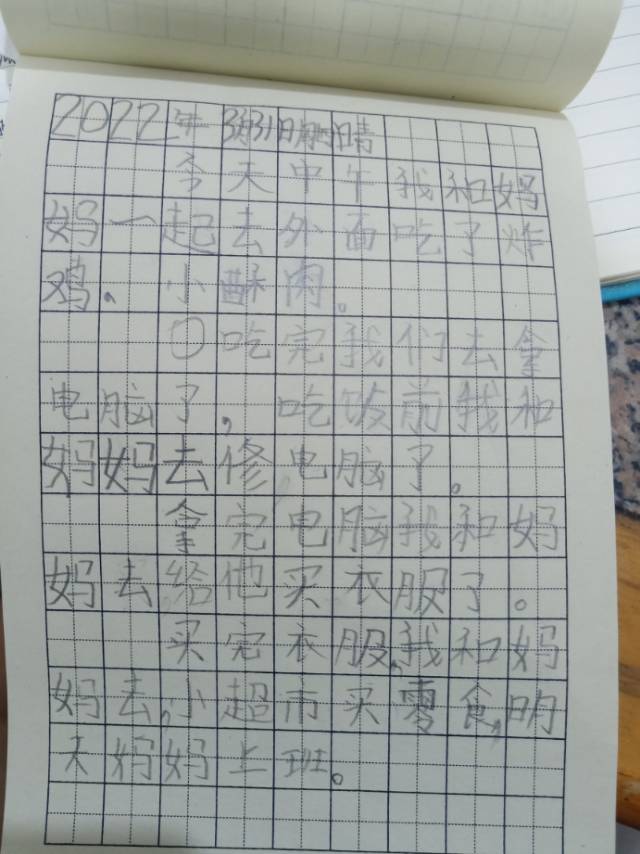 2022年3月31日晴
今天中午我和妈
妈一起去外面吃了炸
鸡、小酥肉。
○吃完我们去拿
电脑了,吃饭前我和
妈妈去修电脑了。
拿完电脑我和妈
妈去给他买衣服了。
买完衣服,我和妈
妈去,小超市买零食,明
天妈妈上班。